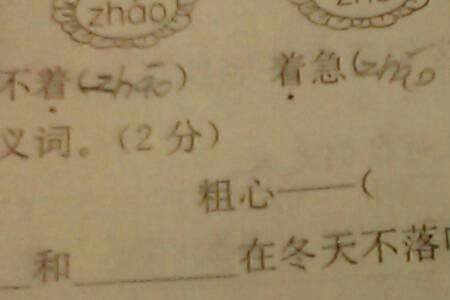 zháo
不着(zhāo)
着急(zhāo
义词。(2分)
粗心——(
和 在冬天不落